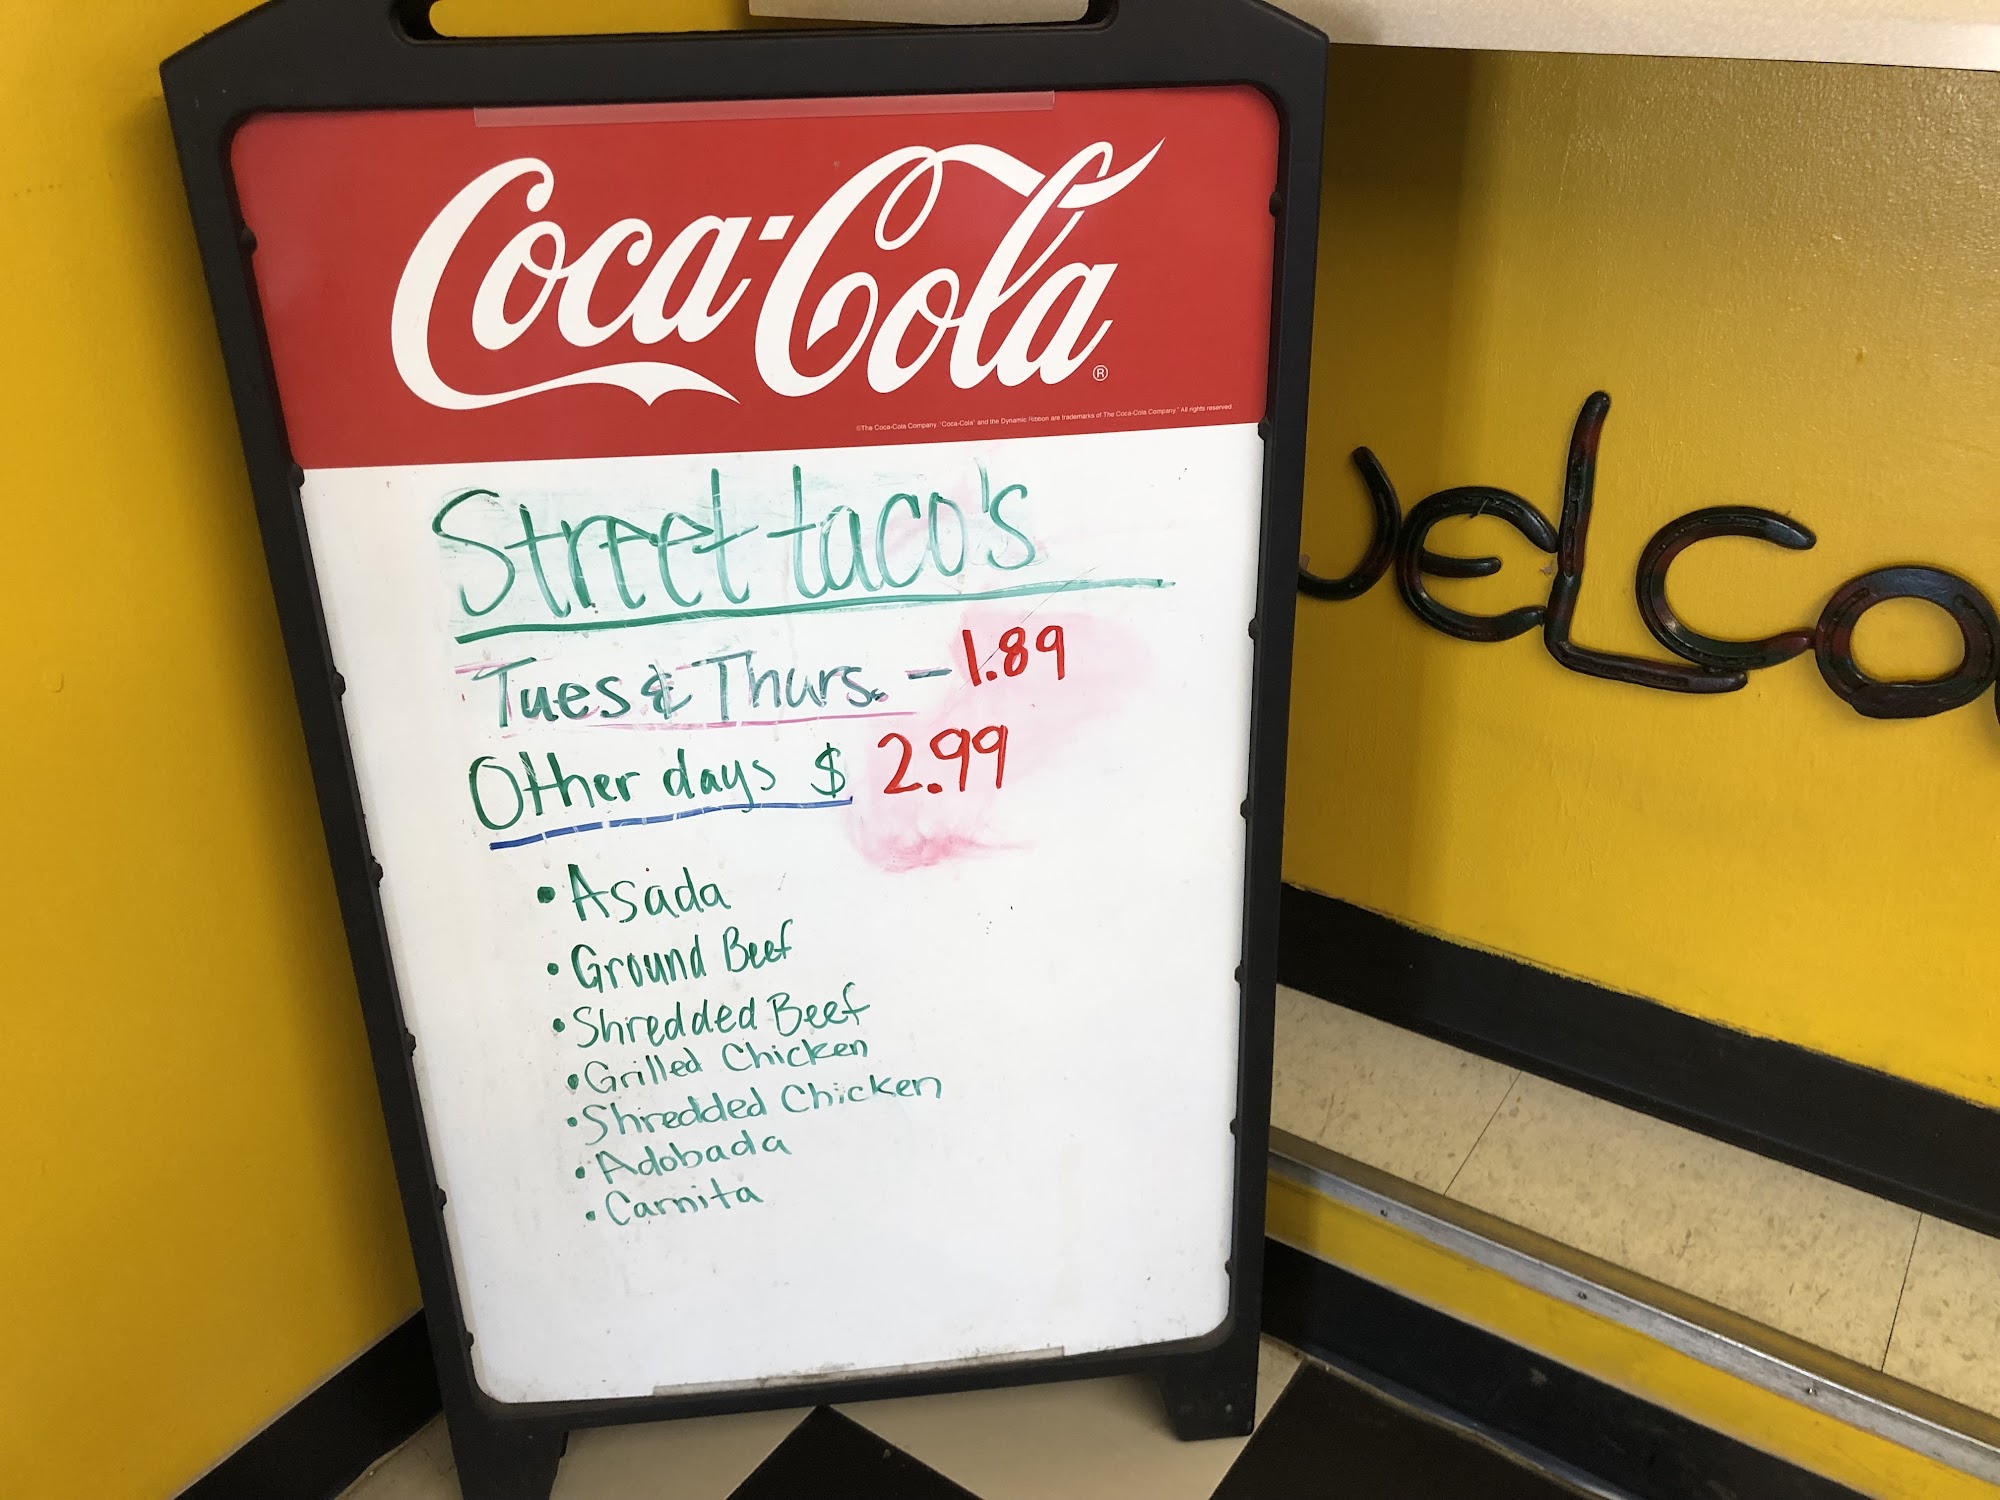 Coca-Cola®
©The Coca-Cola Company. "Coca-Cola" and the Dynamic Ribbon are trademarks of The Coca-Cola Company." All rights reserved
Street taco's
Tues & Thurs. - 1.89
Other days $ 2.99
• Asada
• Ground Beef
• Shredded Beef
• Grilled Chicken
• Shredded Chicken
• Adobada
• Carnita
WELCO